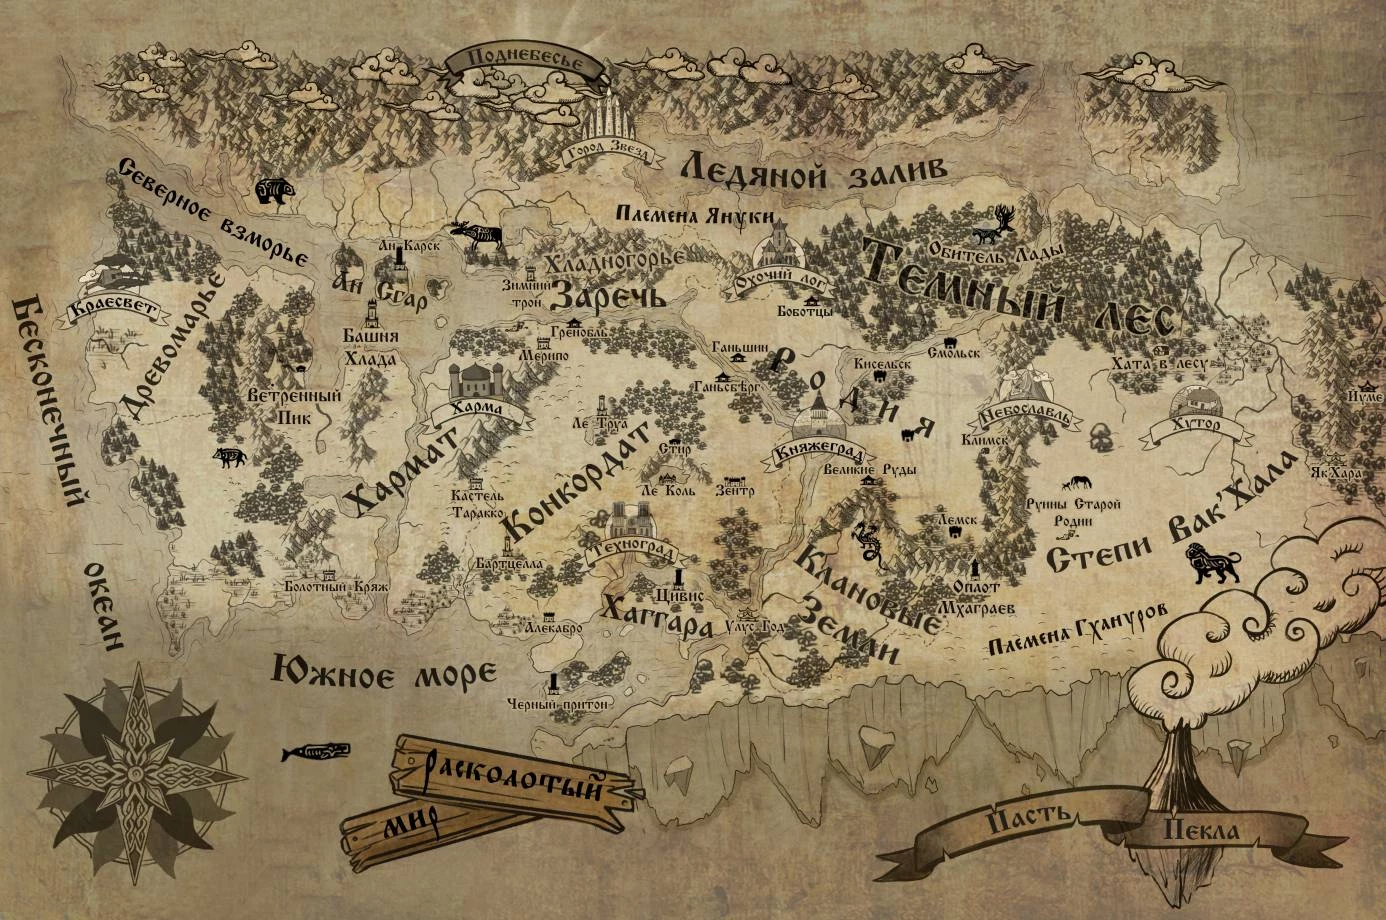 Поднебесье
Город Звезд
Ледяной залив
Северное взморье
Племена Януки
Ан-Карск
Обитель Лады
Хладногорье
Темный лес
Охочий лог
Ан Сгар
Зимний
трон
Заречь
Краесвет
Боботцы
Древомарье
Башня
Хлада
Гренобль
Мерипо
Ганьшин
Родия
Смольск
Кисельск
Хата в лесу
Бесконечный
океан
Ветренный
Пик
Ганьсбѣрг
Харма
Ле Труа
Княжеград
Небославль
Хутор
Климск
Хармат
Конкордат
Стир
Великие Руды
ЯкХара
Кастель
Таракко
Ле Коль
Зентр
Руины Старой
Родии
Степи Вак'Хала
Техноград
Лемск
Бартцелла
Клановые
Земли
Болотный Кряж
Цивис
Оплот
Мхаграев
Хаггара
Улус Год
Алекабро
Племена Гхануров
Южное море
Черный притон
Расколотый
мир
Пасть Пекла